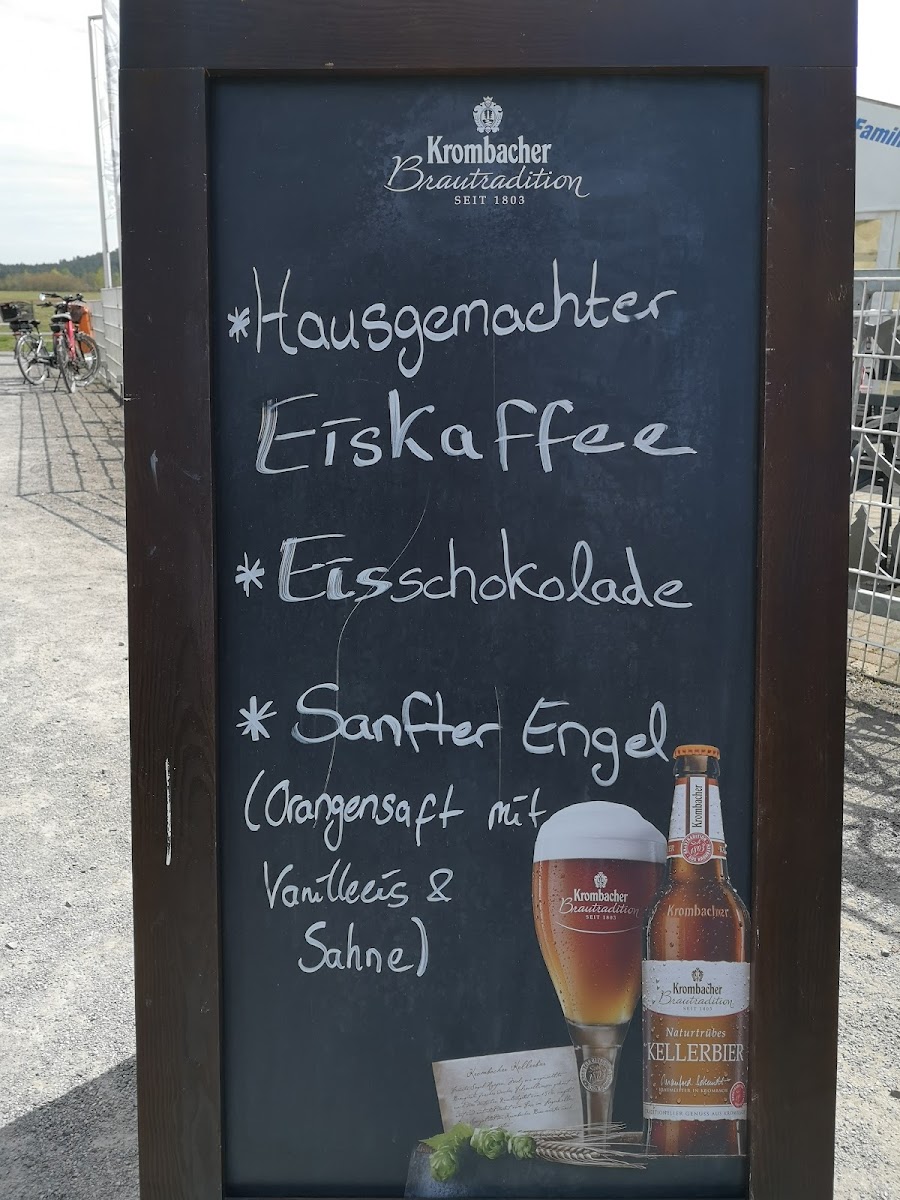 Krombacher
Brautradition
SEIT 1803
Famili
*Hausgemachter
Eiskaffee
*Eisschokolade
* Sanfter Engel
(Orangensaft mit
Vanilleeis &
Sahne)
Krombacher
Krombacher
Brautradition
SEIT 1803
Krombacher
Krombacher
Brautradition
SEIT 1803
Naturtrübes
KELLERBIER
Krombacher Kellerbier